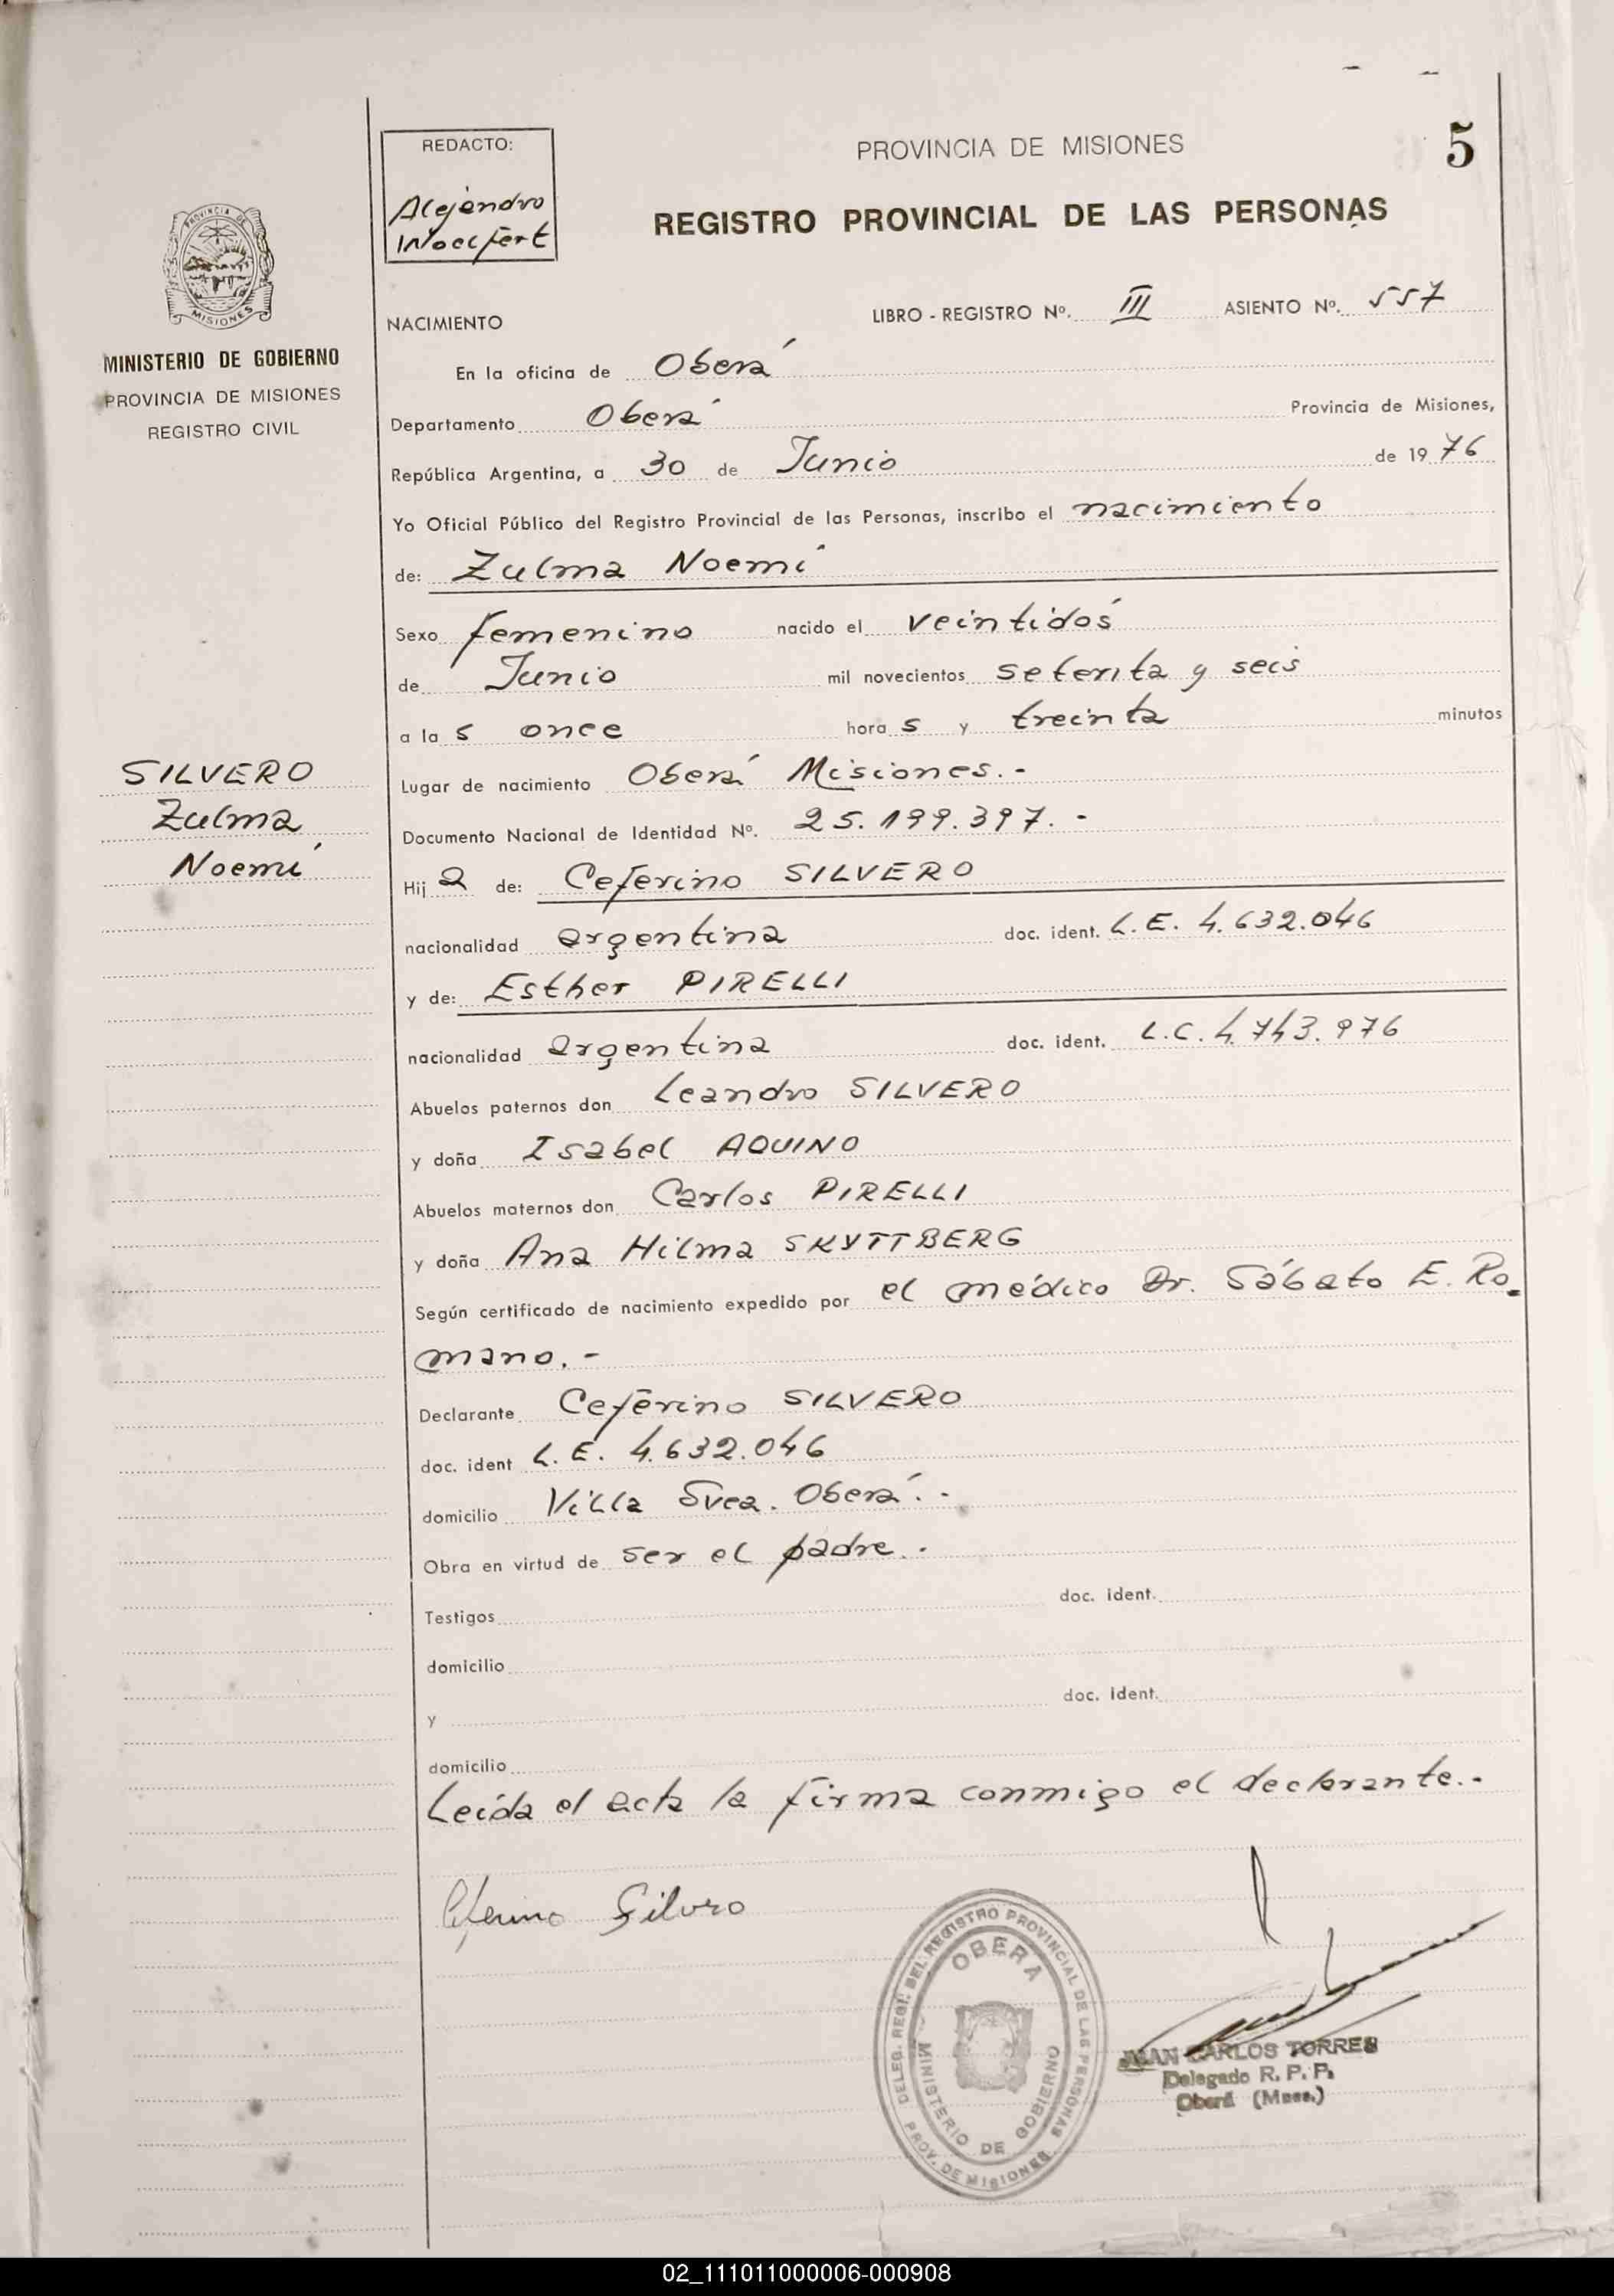 REDACTO:
Alejandro
PROVINCIA DE MISIONES
5
REGISTRO PROVINCIAL DE LAS PERSONAS
PROVINCIA DE
MISIONES
MINISTERIO DE GOBIERNO
PROVINCIA DE MISIONES
REGISTRO CIVIL
NACIMIENTO
LIBRO - REGISTRO Nº. III ASIENTO Nº. 557
En la oficina de Oberá
Departamento Oberá Provincia de Misiones,
República Argentina, a 30 de Junio de 1976
Yo Oficial Público del Registro Provincial de las Personas, inscribo el nacimiento
de: Zulma Noemí
Sexo femenino nacido el veintidós
de Junio mil novecientos setenta y seis
a las once horas y treinta minutos
SILVERO
Zulma
Noemí
Lugar de nacimiento Oberá Misiones.-
Documento Nacional de Identidad Nº. 25.199.397.-
Hija de: Ceferino SILVERO
nacionalidad argentina doc. ident. L.E. 4.632.046
y de: Esther PIRELLI
nacionalidad argentina doc. ident. L.C. 4.743.976
Abuelos paternos don Leandro SILVERO
y doña Isabel AQUINO
Abuelos maternos don Carlos PIRELLI
y doña Ana Hilma SKYTTBERG
Según certificado de nacimiento expedido por el médico Dr. Sábato E. Ro-
mano.-
Declarante Ceferino SILVERO
doc. ident L.E. 4.632.046
domicilio Villa Svea. Oberá.-
Obra en virtud de ser el padre.-
Testigos doc. ident.
domicilio
y doc. ident.
domicilio
Leída el acta la firma conmigo el declarante.-
Ceferino Silvero
DELEG. REGI. DEL REGISTRO PROVINCIAL DE LAS PERSONAS
OBERA
MINISTERIO DE GOBIERNO
PROV. DE MISIONES
JUAN CARLOS TORRES
Delegado R. P. P.
Oberá (Mnes.)
02_111011000006-000908